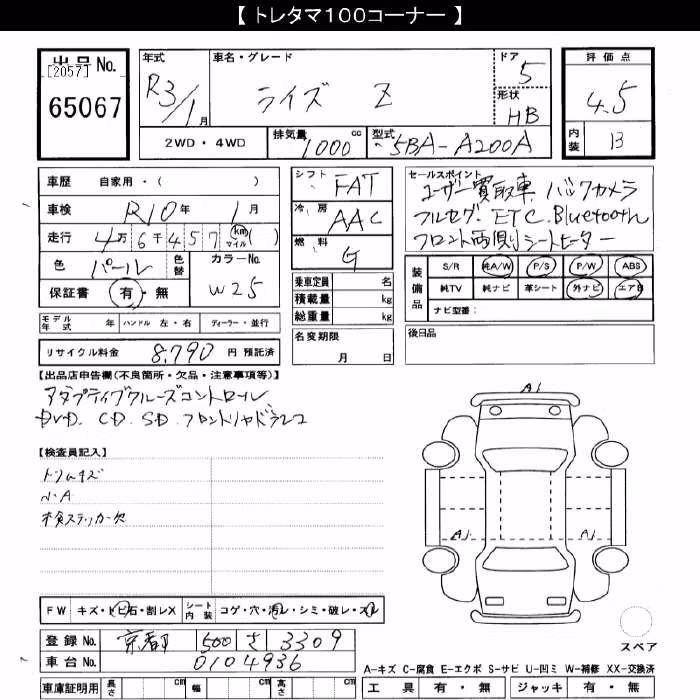 【 トレタマ100コーナー 】
出品 No.
[2057]
65067
年式
R3/1月
車名・グレード
ライズ Z
ドア
5
形状
HB
評価点
4.5
内装
B
2WD・4WD
排気量
1000 cc
型式
5BA-A200A
車歴 自家用・( )
車検 R10年 1月
走行 4万6千457 (km) マイル ( )
色 パール 色替 カラーNo. W25
保証書 有・無
シフト FAT
冷房 AAC
燃料 G
乗車定員 名
積載量 kg
総重量 kg
名変期限
月 日
セールスポイント
ユーザー買取車 バックカメラ
フルセグ. ETC. Bluetooth
フロント両側シートヒーター
装備品
S/R 純A/W P/S P/W ABS
純TV 純ナビ 革シート 外ナビ エアB
ナビ型番:
後日品
モデル年式 年 ハンドル 左・右 ディーラー・並行
リサイクル料金 8,790 円 預託済
【出品店申告欄(不良箇所・欠品・注意事項等)】
アダプティブクルーズコントロール
DVD. CD. SD. フロントリヤドラレコ
【検査員記入】
トリムキズ
ハ・A
検ステッカー欠
A1
A1
A1
スペア
FW キズ・トビ石・割レX シート内装 コゲ・穴・汚レ・シミ・破レ・スレ
登録 No. 京都 500 さ 3309
車台 No. 0104936
車庫証明用 長さ cm 幅 cm 高さ cm
A-キズ C-腐食 E-エクボ S-サビ U-凹ミ W-補修 XX-交換済
工具 有・無 ジャッキ 有・無